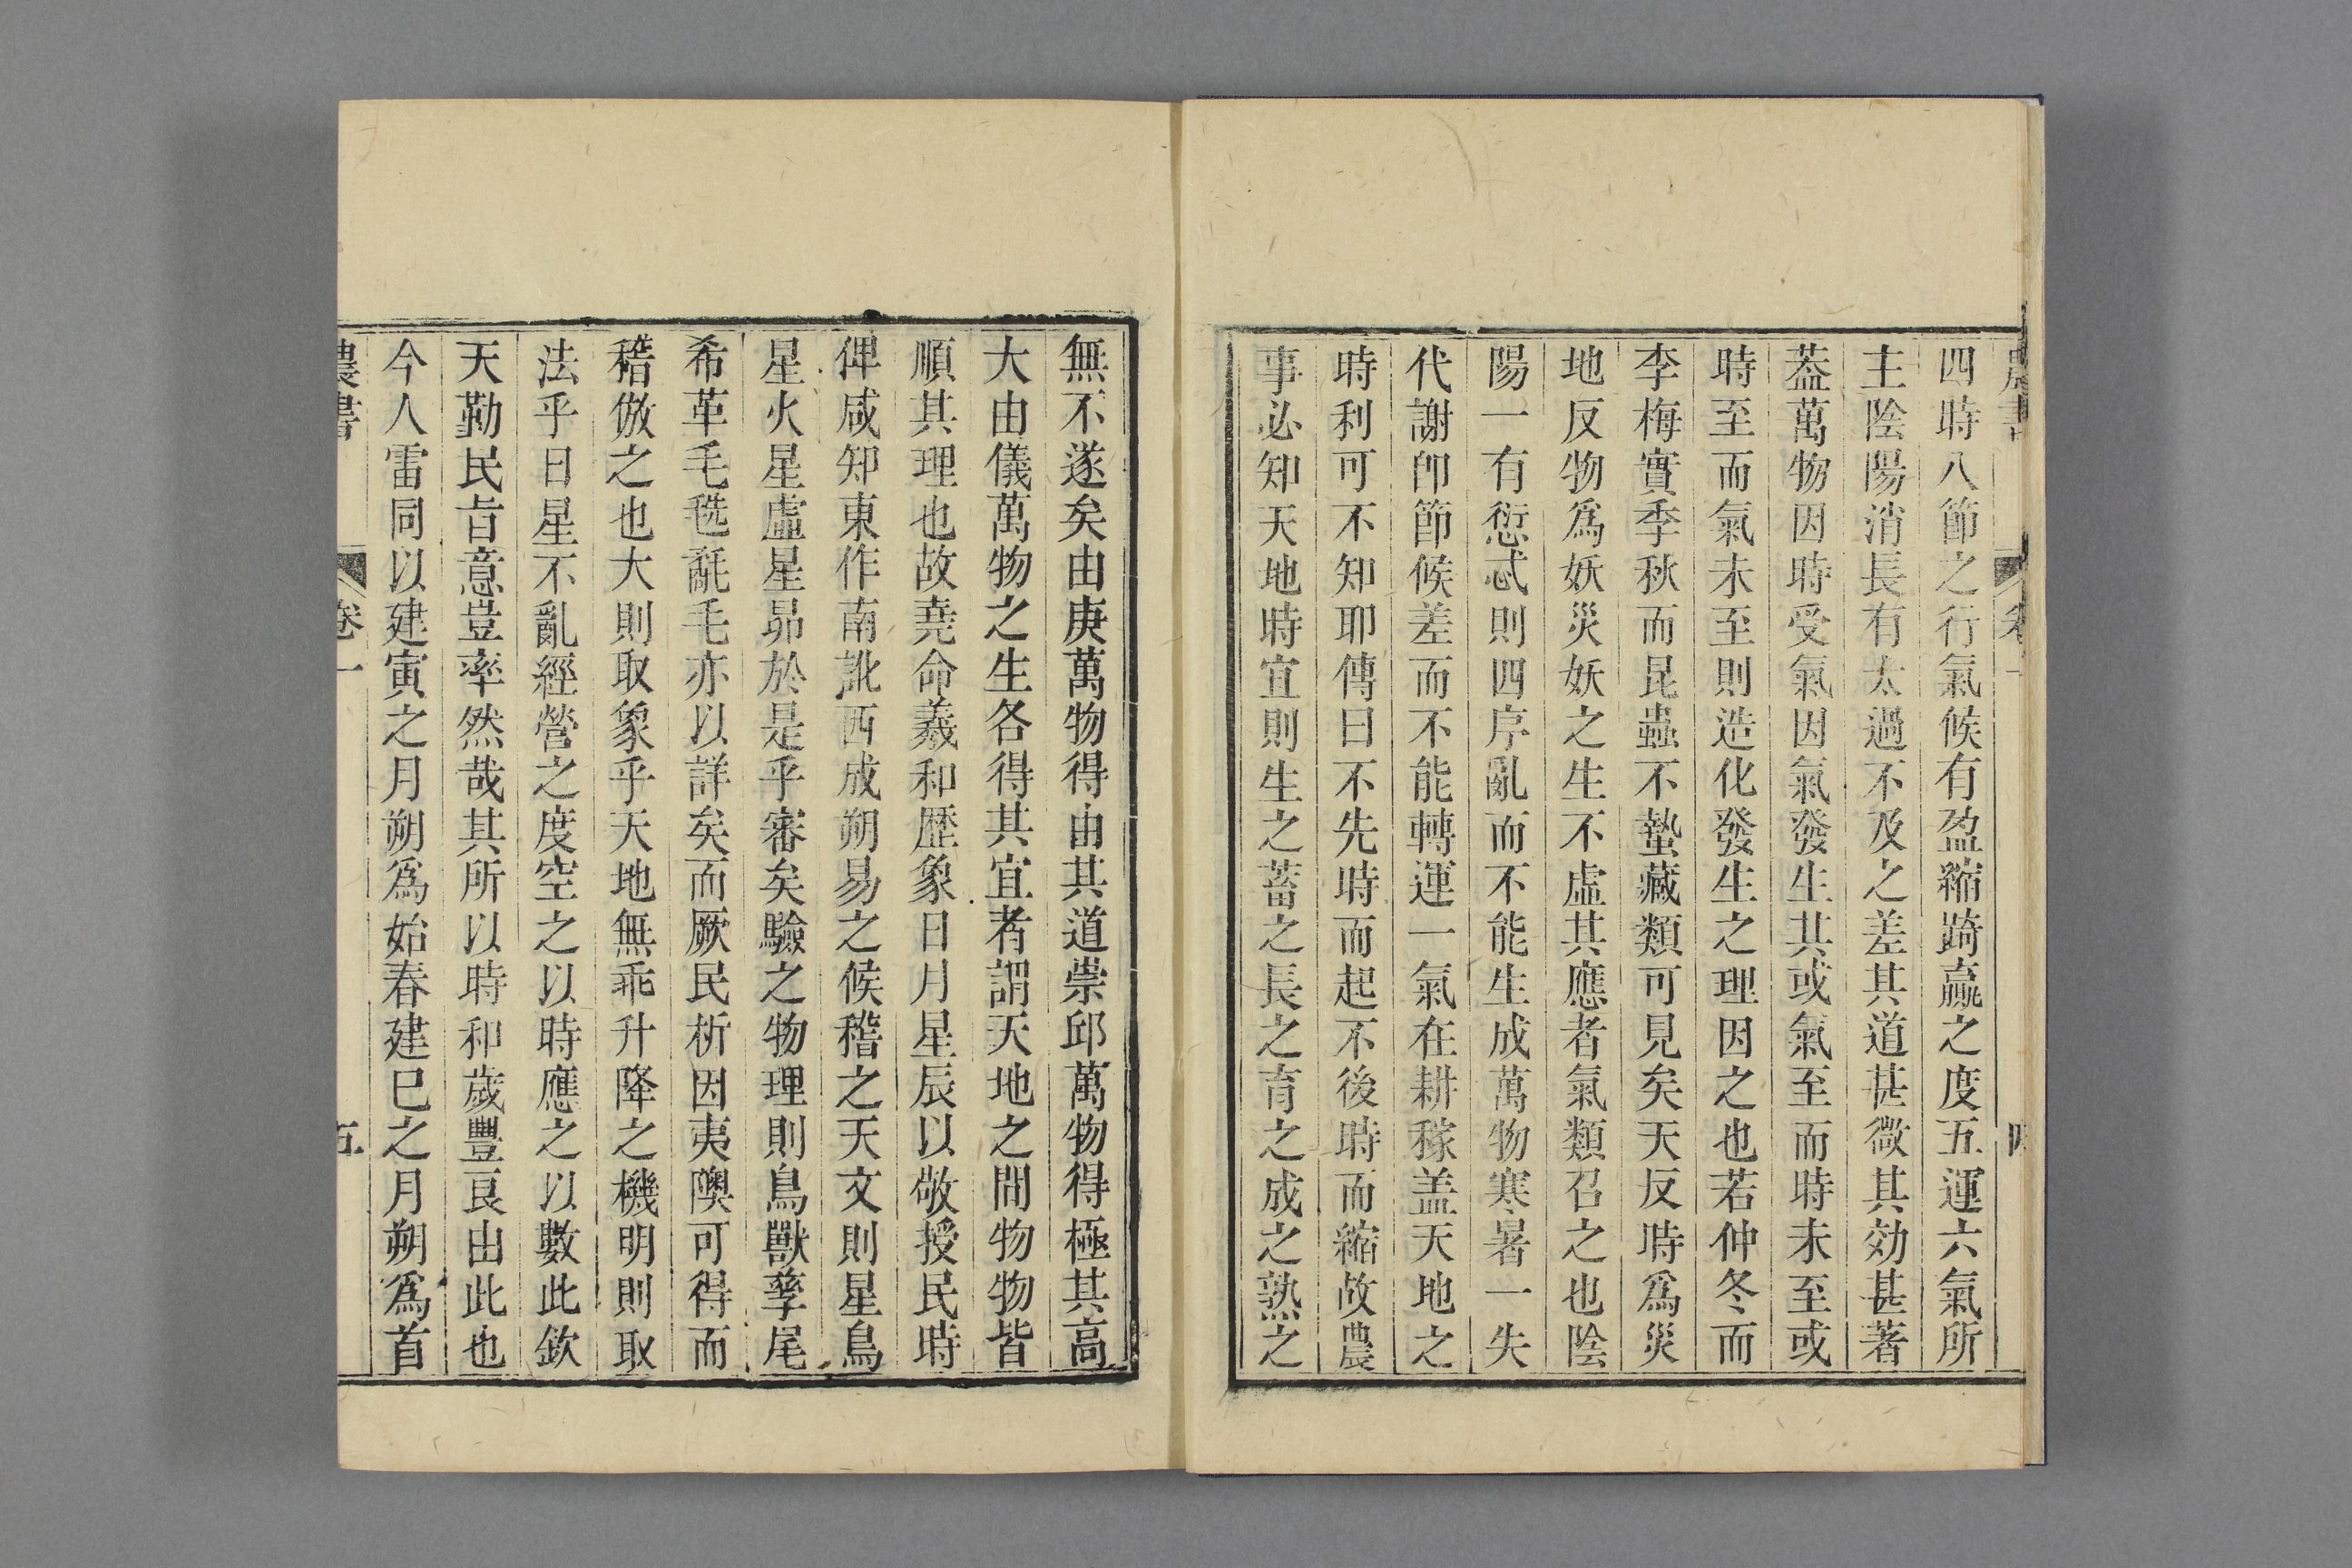 農書 卷一 四
四時八節之行氣候有盈縮踦贏之度五運六氣所
主陰陽消長有太過不及之差其道甚微其効甚著
葢萬物因時受氣因氣發生其或氣至而時未至或
時至而氣未至則造化發生之理因之也若仲冬而
李梅實季秋而昆蟲不蟄藏類可見矣天反時爲災
地反物爲妖災妖之生不虛其應者氣類召之也陰
陽一有愆忒則四序亂而不能生成萬物寒暑一失
代謝卽節候差而不能轉運一氣在耕稼盖天地之
時利可不知耶傳曰不先時而起不後時而縮故農
事必知天地時宜則生之蓄之長之育之成之熟之
無不遂矣由庚萬物得由其道崇邱萬物得極其高
大由儀萬物之生各得其宜者謂天地之間物物皆
順其理也故堯命羲和歴象日月星辰以敬授民時
俾咸知東作南訛西成朔易之候稽之天文則星鳥
星火星虛星昴於是乎審矣驗之物理則鳥獸孳尾
希革毛毨氄毛亦以詳矣而厥民析因夷隩可得而
稽倣之也大則取象乎天地無乖升降之機明則取
法乎日星不亂經營之度空之以時應之以數此欽
天勤民旨意豈率然哉其所以時和歲豐良由此也
今人雷同以建寅之月朔爲始春建巳之月朔爲首
農書 卷一 五